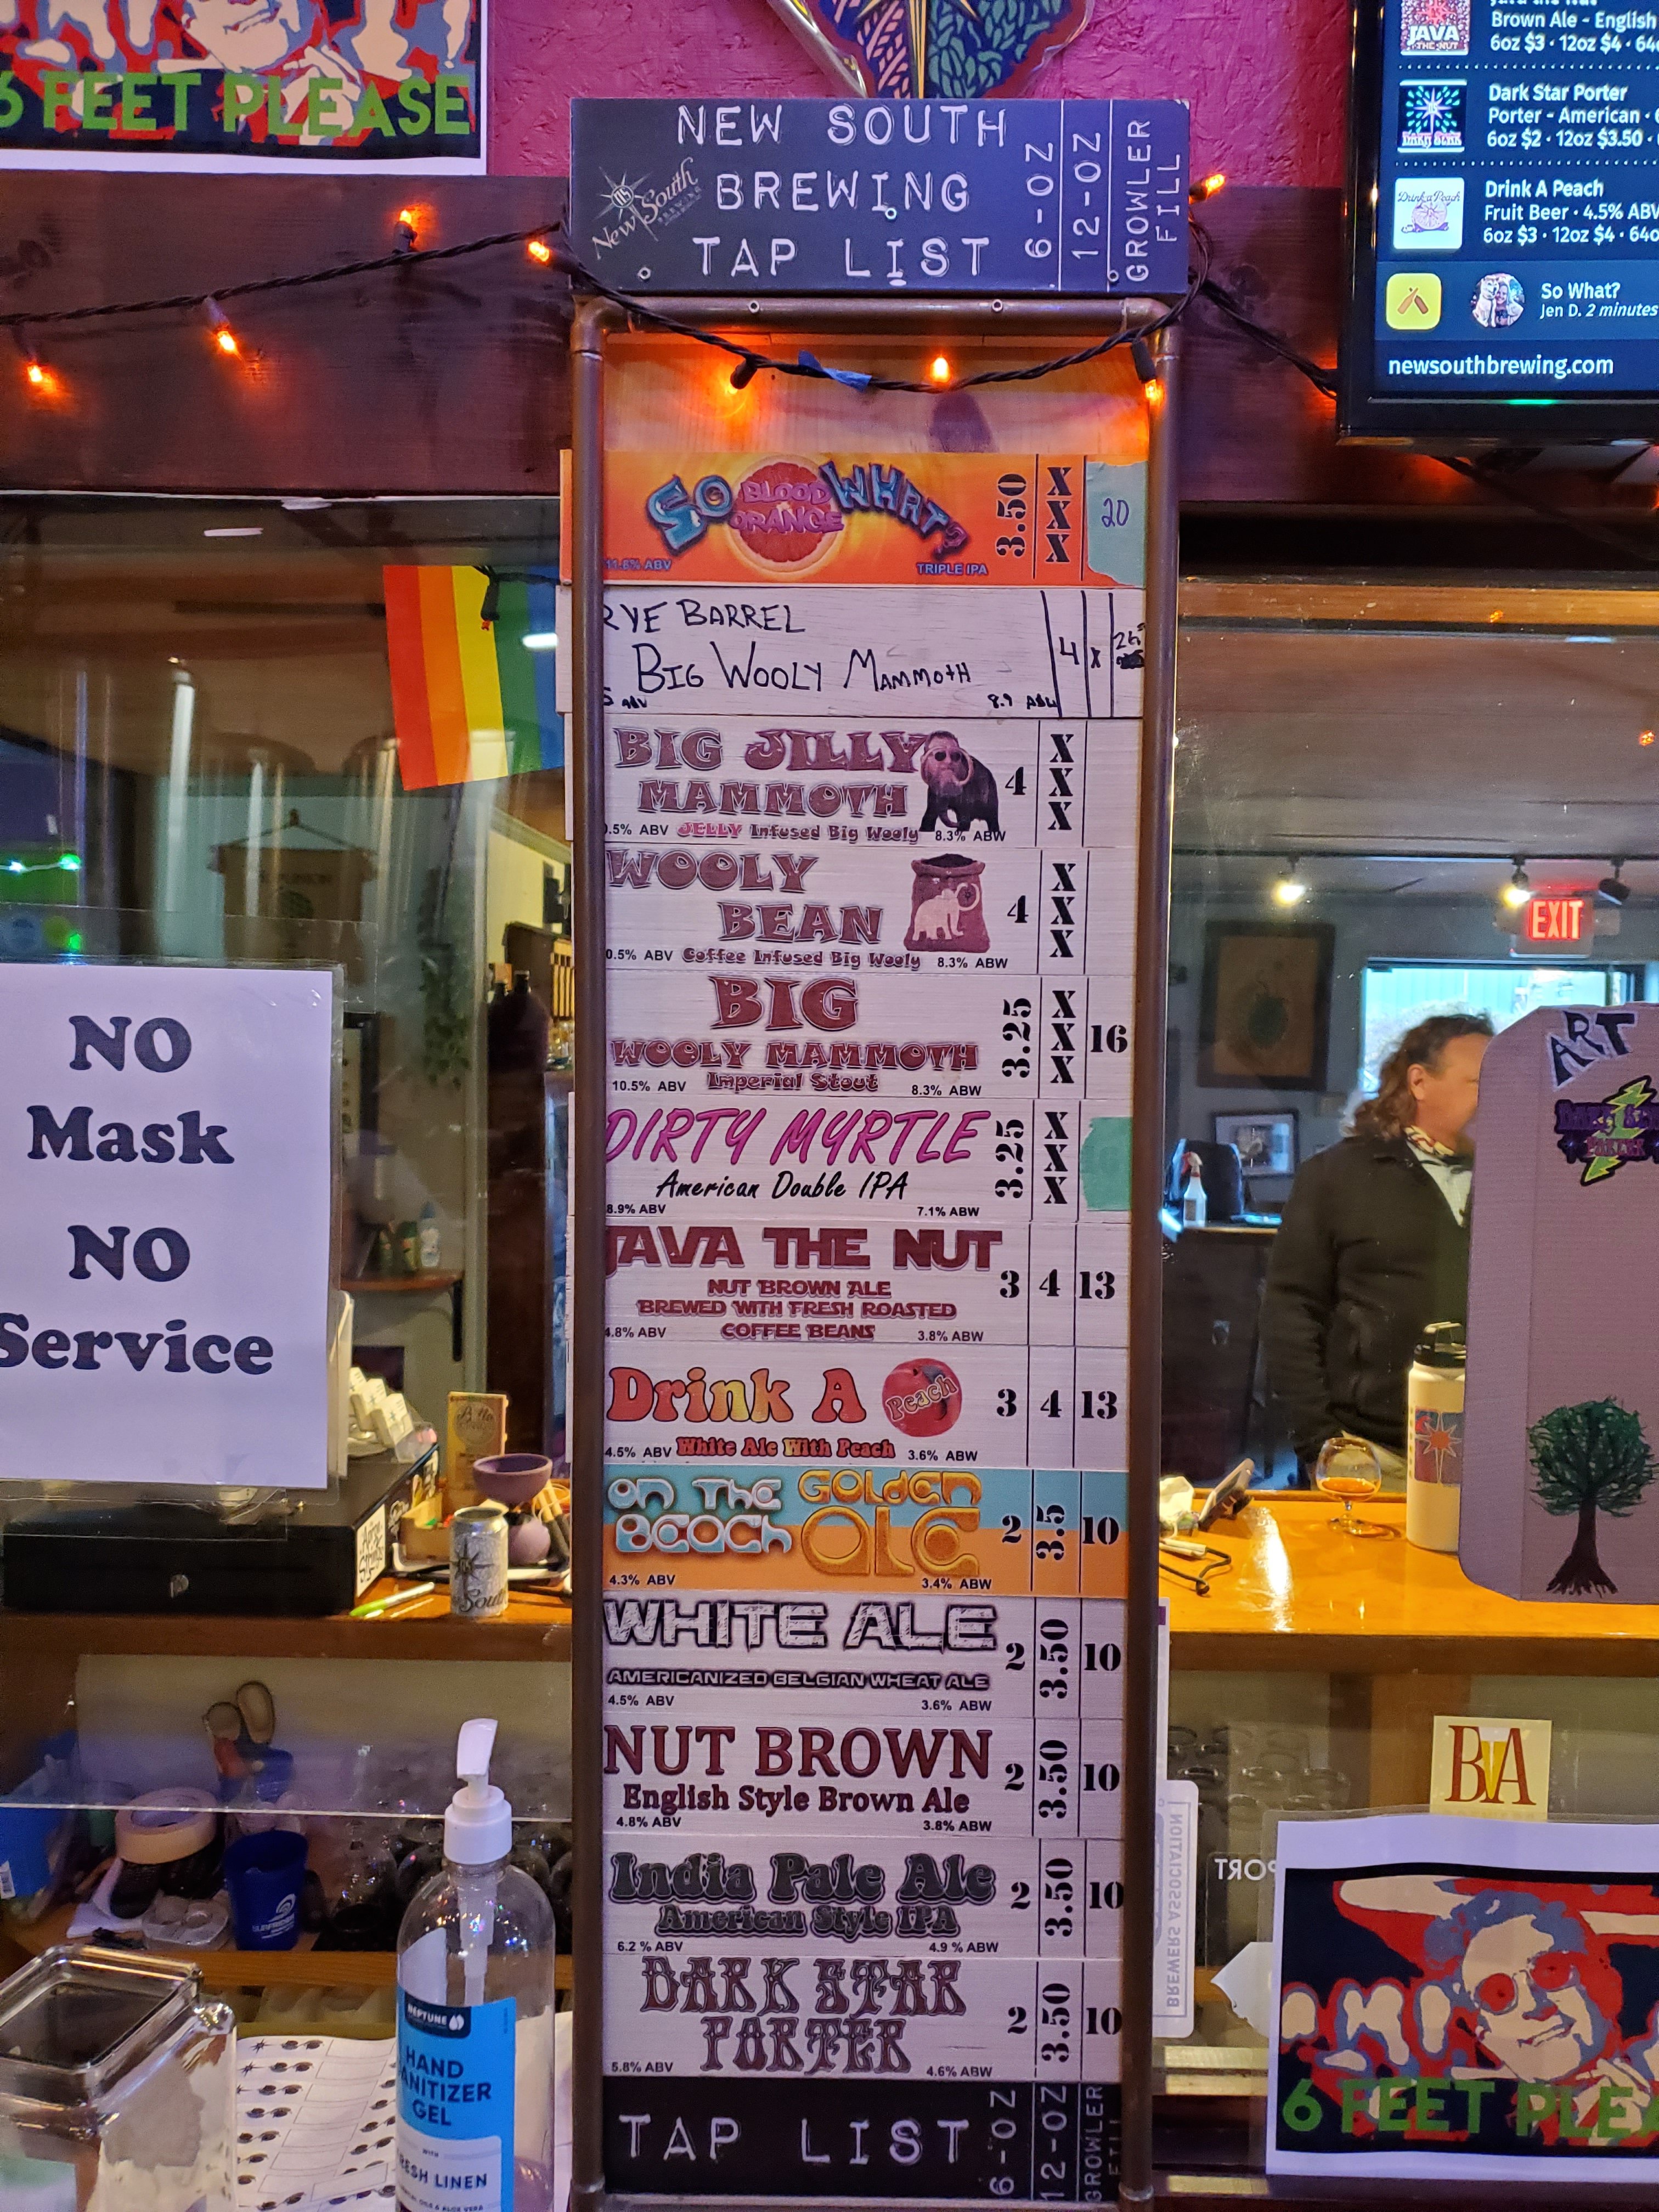 6 FEET PLEASE
NEW SOUTH
BREWING
TAP LIST
6-OZ
12-OZ
GROWLER
FILL
New South
BREWING
JAVA
THE NUT
Brown Ale - English
6oz $3 · 12oz $4 · 64
Dark Star Porter
Porter - American ·
6oz $2 · 12oz $3.50 ·
Drink a Peach
Drink A Peach
Fruit Beer · 4.5% ABV
6oz $3 · 12oz $4 · 64o
So What?
Jen D. 2 minutes
newsouthbrewing.com
SO BLOOD ORANGE WHAT?
11.8% ABV TRIPLE IPA
3.50 XXX 20
RYE BARREL
BIG WOOLY MAMMOTH
ABV 8.9 ABW
4 X
BIG JILLY
MAMMOTH
.5% ABV JELLY Infused Big Wooly 8.3% ABW
4 XXX
WOOLY
BEAN
0.5% ABV Coffee Infused Big Wooly 8.3% ABW
4 XXX
BIG
WOOLY MAMMOTH
Imperial Stout
10.5% ABV 8.3% ABW
3.25 XXX 16
DIRTY MYRTLE
American Double IPA
8.9% ABV 7.1% ABW
3.25 XXX
JAVA THE NUT
NUT BROWN ALE
BREWED WITH FRESH ROASTED
COFFEE BEANS
4.8% ABV 3.8% ABW
3 4 13
Drink A Peach
4.5% ABV White Ale With Peach 3.6% ABW
3 4 13
On The Beach Golden Ale
4.3% ABV 3.4% ABW
2 3.5 10
WHITE ALE
AMERICANIZED BELGIAN WHEAT ALE
4.5% ABV 3.6% ABW
2 3.50 10
NUT BROWN
English Style Brown Ale
4.8% ABV 3.8% ABW
2 3.50 10
India Pale Ale
American Style IPA
6.2 % ABV 4.9 % ABW
2 3.50 10
DARK STAR
PORTER
5.8% ABV 4.6% ABW
2 3.50 10
TAP LIST
6-OZ
12-OZ
GROWLER
NO
Mask
NO
Service
EXIT
ART
BA
BREWERS ASSOCIATION
6 FEET PLEA
NEPTUNE
HAND
SANITIZER
GEL
WITH
FRESH LINEN